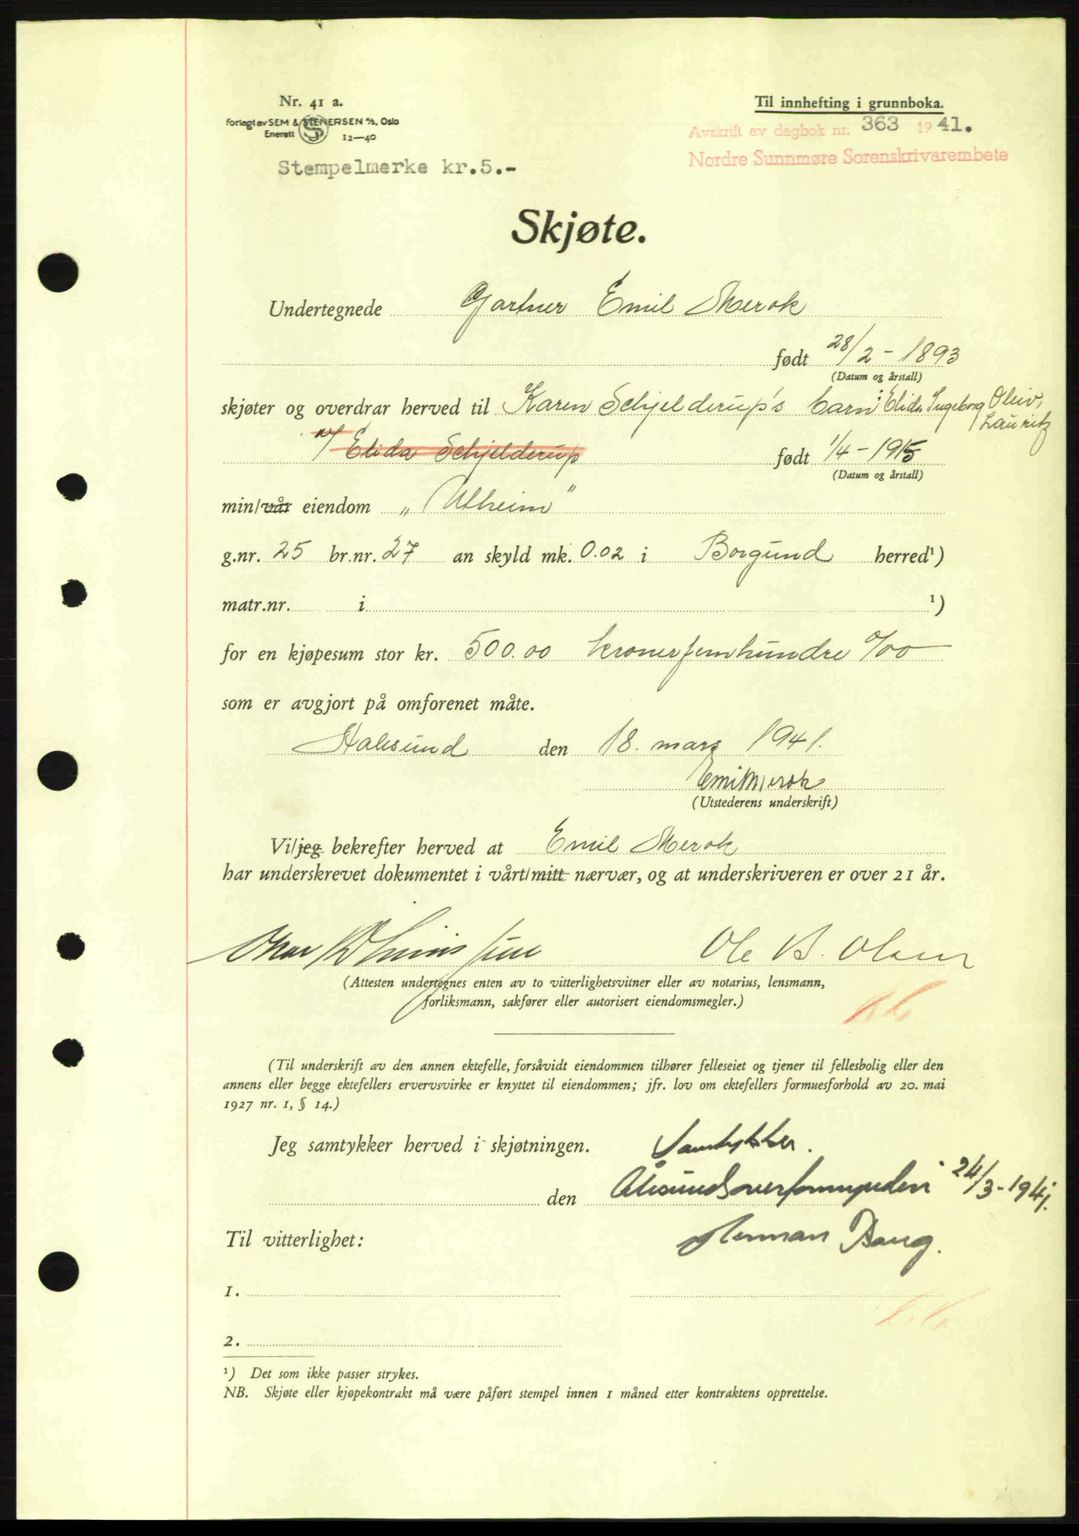 Nr. 41 a.
Forlagt av SEM & STENERSEN A/S, Oslo
Enerett 12—40
Stempelmerke kr.5.-
Til innhefting i grunnboka.
Avskrift av dagbok nr. 363 1941.
Nordre Sunnmøre Sorenskrivarembete
Skjøte.
Undertegnede Gartner Emil Merok
født 28/2 - 1893
(Datum og årstall)
skjøter og overdrar herved til Karen Schjelderup's barn: Elida Ingeborg Oliv, Lauritz
v/ Elida Schjelderup født 1/4 - 1915
(Datum og årstall)
min/vår eiendom „Utheim"
g.nr. 25 br.nr. 27 an skyld mk. 0.02 i Borgund herred¹)
matr.nr. i ¹)
for en kjøpesum stor kr. 500.00 kronerfemhundre 0/00
som er avgjort på omforenet måte.
Aalesund den 18. mars 1941.
Emil Merok
(Utstederens underskrift)
Vi/jeg bekrefter herved at Emil Merok
har underskrevet dokumentet i vårt/mitt nærvær, og at underskriveren er over 21 år.
Ole B. Olsen
(Attesten undertegnes enten av to vitterlighetsvitner eller av notarius, lensmann,
forliksmann, sakfører eller autorisert eiendomsmegler.)
(Til underskrift av den annen ektefelle, forsåvidt eiendommen tilhører felleseiet og tjener til fellesbolig eller den
annens eller begge ektefellers ervervsvirke er knyttet til eiendommen; jfr. lov om ektefellers formuesforhold av 20. mai
1927 nr. 1, § 14.)
Jeg samtykker herved i skjøtningen. Samtykker.
den Ålesund overformynderi 24/3-1941.
Til vitterlighet: Herman Baug.
1.
2.
¹) Det som ikke passer strykes.
NB. Skjøte eller kjøpekontrakt må være påført stempel innen 1 måned etter kontraktens opprettelse.